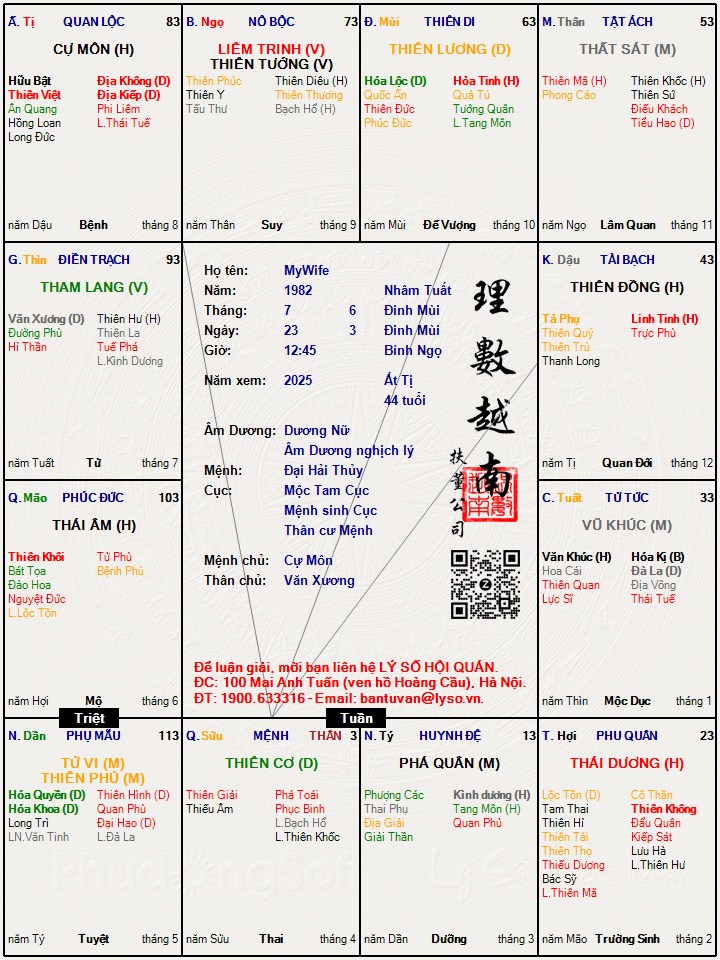 Ấ. Tị QUAN LỘC 83
CỰ MÔN (H)
Hữu Bật Địa Không (D)
Thiên Việt Địa Kiếp (D)
Ân Quang Phi Liêm
Hồng Loan L.Thái Tuế
Long Đức
năm Dậu Bệnh tháng 8
B. Ngọ NÔ BỘC 73
LIÊM TRINH (V)
THIÊN TƯỚNG (V)
Thiên Phúc Thiên Diêu (H)
Thiên Y Thiên Thương
Tấu Thư Bạch Hổ (H)
năm Thân Suy tháng 9
Đ. Mùi THIÊN DI 63
THIÊN LƯƠNG (D)
Hóa Lộc (D) Hỏa Tinh (H)
Quốc Ấn Quả Tú
Thiên Đức Tướng Quân
Phúc Đức L.Tang Môn
năm Mùi Đế Vượng tháng 10
M. Thân TẬT ÁCH 53
THẤT SÁT (M)
Thiên Mã (H) Thiên Khốc (H)
Phong Cáo Thiên Sứ
Điếu Khách
Tiểu Hao (D)
năm Ngọ Lâm Quan tháng 11
G. Thìn ĐIỀN TRẠCH 93
THAM LANG (V)
Văn Xương (D) Thiên Hư (H)
Đường Phù Thiên La
Hỉ Thần Tuế Phá
L.Kình Dương
năm Tuất Tử tháng 7
Họ tên: MyWife
Năm: 1982 Nhâm Tuất
Tháng: 7 6 Đinh Mùi
Ngày: 23 3 Đinh Mùi
Giờ: 12:45 Bính Ngọ
Năm xem: 2025 Ất Tị
44 tuổi
Âm Dương: Dương Nữ
Âm Dương nghịch lý
Mệnh: Đại Hải Thủy
Cục: Mộc Tam Cục
Mệnh sinh Cục
Thân cư Mệnh
Mệnh chủ: Cự Môn
Thân chủ: Văn Xương
理數越南
扶董公司
Để luận giải, mời bạn liên hệ LÝ SỐ HỘI QUÁN.
ĐC: 100 Mai Anh Tuấn (ven hồ Hoàng Cầu), Hà Nội.
ĐT: 1900.633316 - Email: bantuvan@lyso.vn.
K. Dậu TÀI BẠCH 43
THIÊN ĐỒNG (H)
Tả Phụ Linh Tinh (H)
Thiên Quý Trực Phù
Thiên Trù
Thanh Long
năm Tị Quan Đới tháng 12
Q. Mão PHÚC ĐỨC 103
THÁI ÂM (H)
Thiên Khôi Tử Phù
Bát Tọa Bệnh Phù
Đào Hoa
Nguyệt Đức
L.Lộc Tồn
năm Hợi Mộ tháng 6
C. Tuất TỬ TỨC 33
VŨ KHÚC (M)
Văn Khúc (H) Hóa Kị (B)
Hoa Cái Đà La (D)
Thiên Quan Địa Võng
Lực Sĩ Thái Tuế
năm Thìn Mộc Dục tháng 1
Triệt
Tuần
N. Dần PHỤ MẪU 113
TỬ VI (M)
THIÊN PHỦ (M)
Hóa Quyền (D) Thiên Hình (D)
Hóa Khoa (D) Quan Phù
Long Trì Đại Hao (D)
LN.Văn Tinh L.Đà La
năm Tý Tuyệt tháng 5
Q. Sửu MỆNH THÂN 3
THIÊN CƠ (D)
Thiên Giải Phá Toái
Thiếu Âm Phục Binh
L.Bạch Hổ
L.Thiên Khốc
năm Sửu Thai tháng 4
N. Tý HUYNH ĐỆ 13
PHÁ QUÂN (M)
Phượng Các Kình dương (H)
Thai Phụ Tang Môn (H)
Địa Giải Quan Phủ
Giải Thần
năm Dần Dưỡng tháng 3
T. Hợi PHU QUÂN 23
THÁI DƯƠNG (H)
Lộc Tồn (D) Cô Thần
Tam Thai Thiên Không
Thiên Hỉ Đẩu Quân
Thiên Tài Kiếp Sát
Thiên Thọ Lưu Hà
Thiếu Dương L.Thiên Hư
Bác Sỹ
L.Thiên Mã
năm Mão Trường Sinh tháng 2